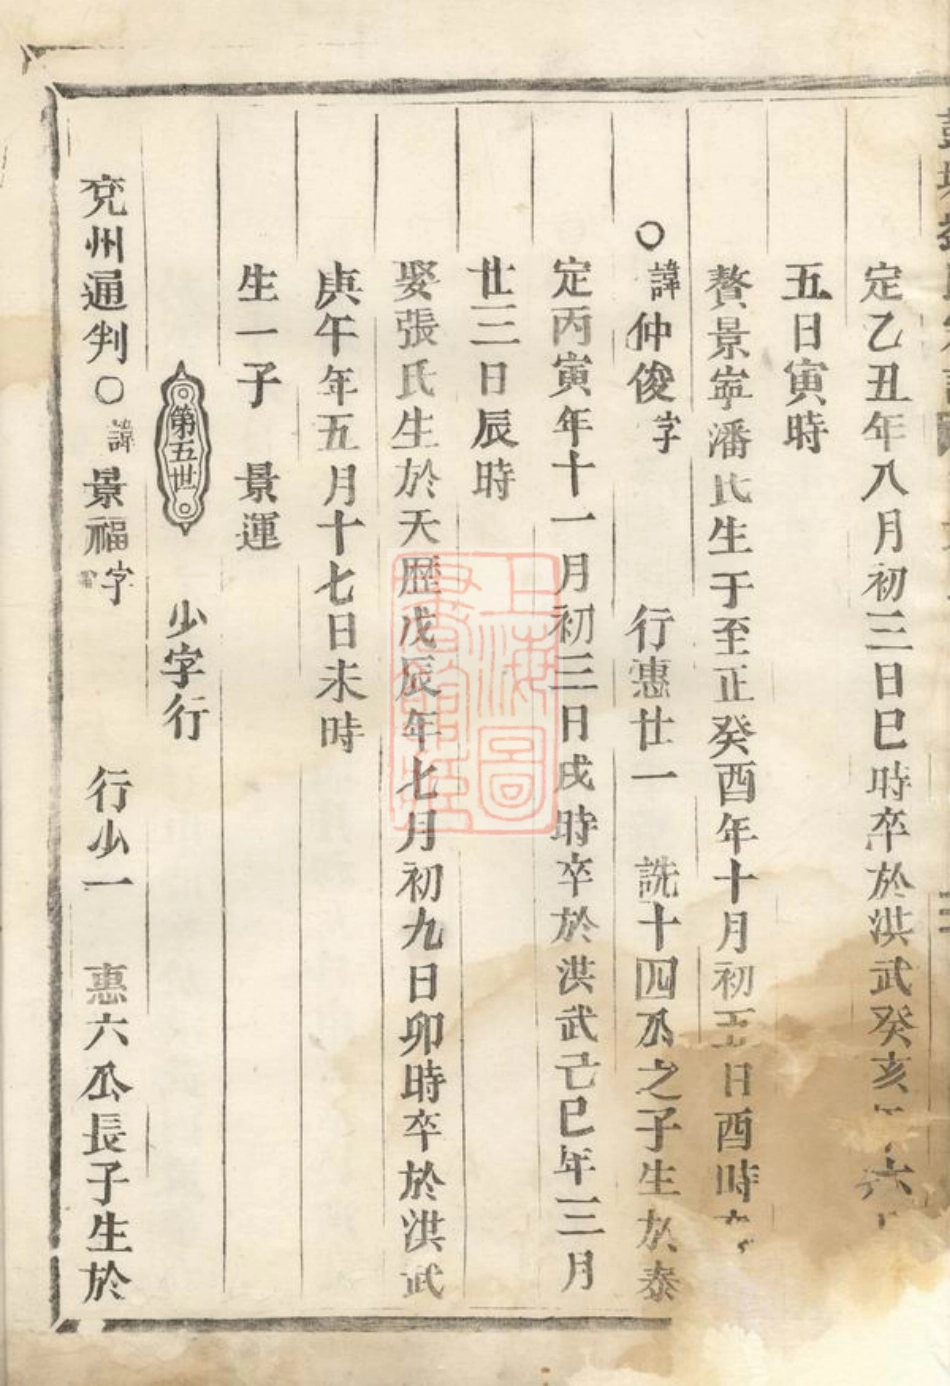 定乙丑年八月初三日巳時卒於洪武癸亥年六
五日寅時
贅景寧潘氏生于至正癸酉年十月初五日酉時
〇諱仲俊字 行惠廿一 詵十四公之子生於泰
定丙寅年十一月初三日戌時卒於洪武己巳年三月
廿三日辰時
娶張氏生於天歷戊辰年七月初九日卯時卒於洪武
庚午年五月十七日未時
生一子 景運
第五世 少字行
兗州通判〇諱景福字 行少一 惠六公長子生於
上海圖書館藏